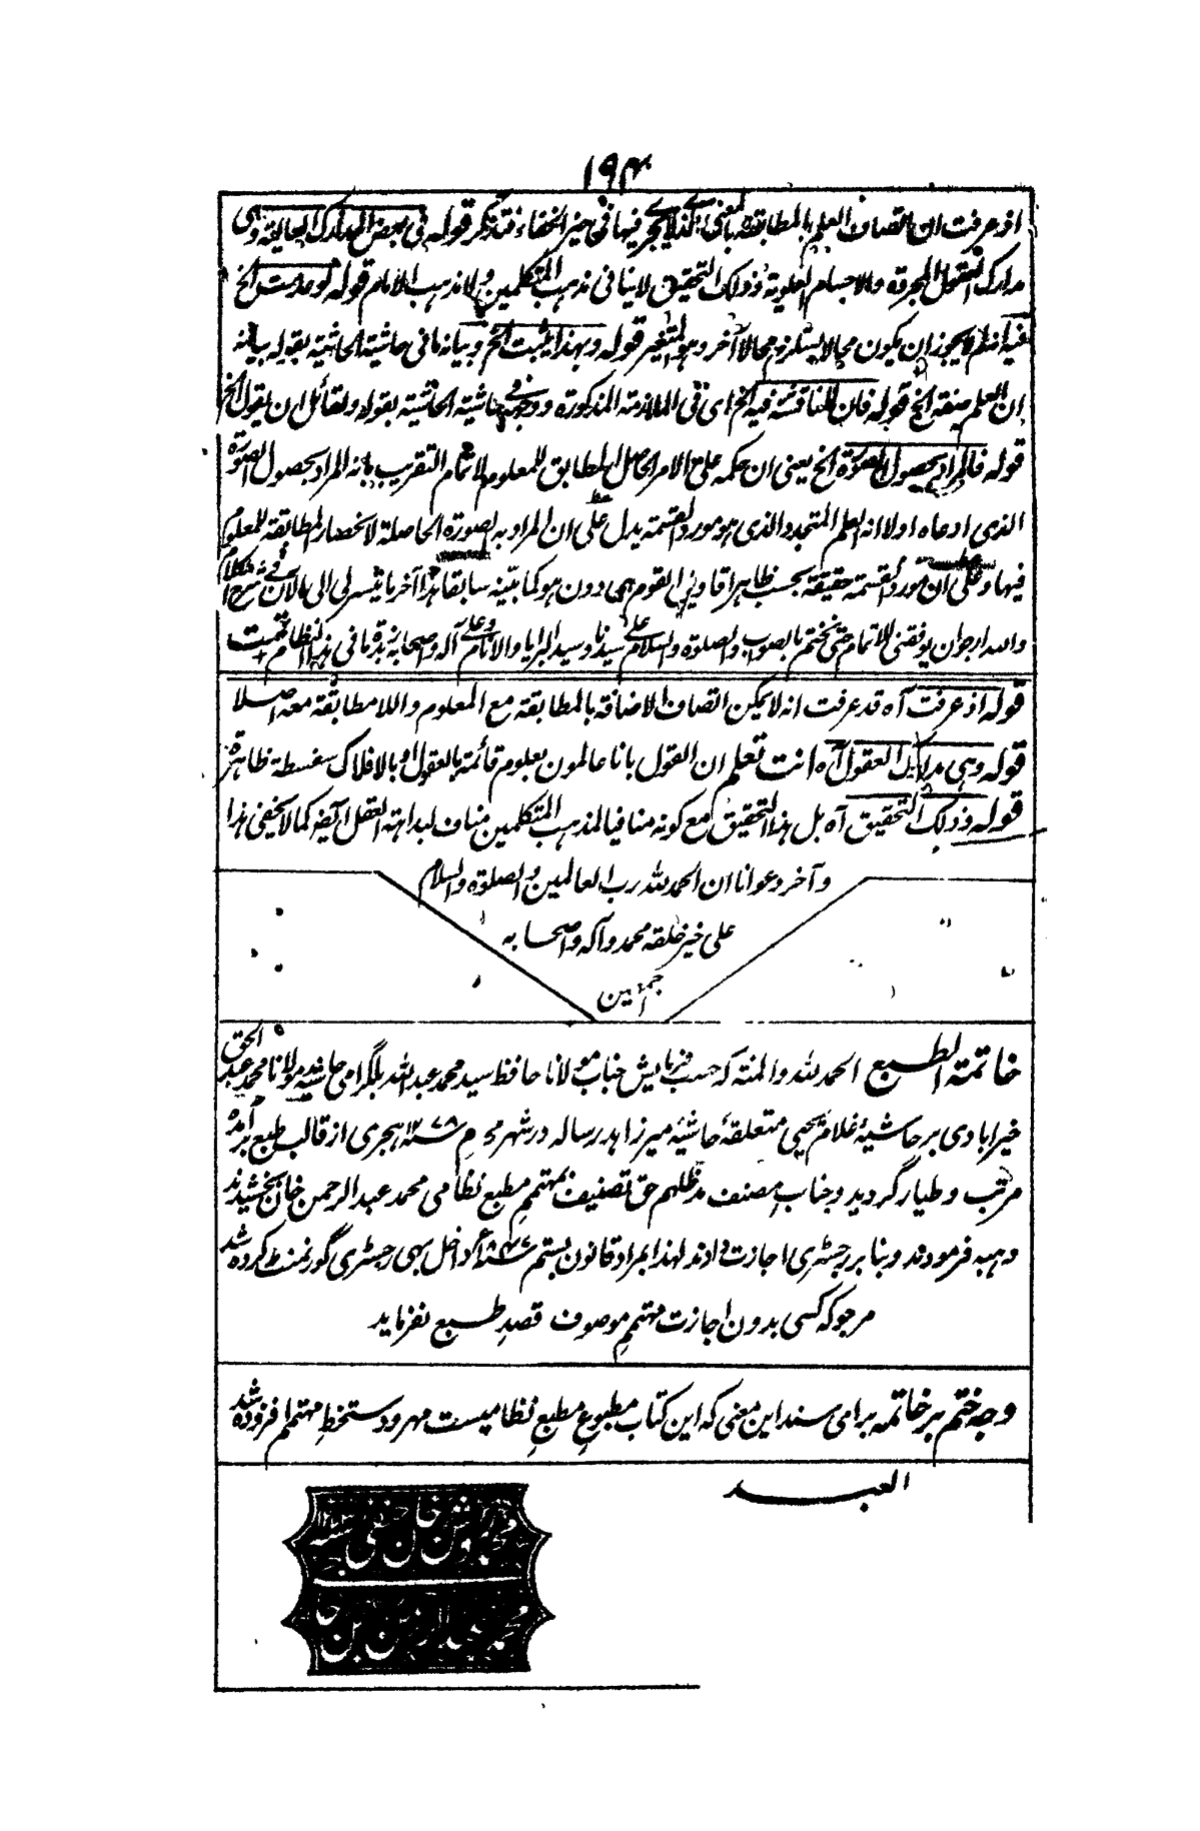 ۱۹۴
اذ عرفت ان اتصاف العلم بالمطابقة بالمعنى فيها فى حيز الخفاء فتذكر قوله فى بعض المدارك العالية وهى
مدارك العقول المجردة والاجسام العلوية وذلك التحقيق لا ينافى مذهب المتكلمين ولا مذهب الامام قوله لوحدت الخ
فيه انه يجوز ان يكون محالا يستلزم محالا آخر وهو التغير قوله وبهذا يثبت الخ وبيانه ما فى حاشية الحاشية بقوله بيانه
ان العلم صفة الخ قوله فان المناقشة فيه الخ اى فى الملازمة المذكورة ووجه فى حاشية الحاشية بقوله ولقائل ان يقول الخ
قوله فالمراد بحصول الصورة الخ يعنى ان حكمه على الامر الحاصل المطابق للمعلوم لاتمام التقريب بانه المراد بحصول الصورة
الذى ادعاه اولا انه العلم المتجدد الذى هو مورد القسمة يدل على ان المراد به الصورة الحاصلة لانحصار المطابقة للمعلوم
فيها وعلى ان مورد القسمة حقيقة بحسب ظاهر اقاويل القوم هى دون هو كما بينه سابقا هذا آخر ما تيسر لى الى الآن فى شرح الكلام
والله ارجو ان يوفقنى للاتمام حتى نختم بالصواب والصلوة والسلام على سيدنا وسيد البرايا والانام وعلى آله واصحابه نبذة ما فى هذا النظام تمت
قوله اذ عرفت آه قد عرفت انه لا يمكن اتصاف الاضافة بالمطابقة مع المعلوم واللا مطابقة معه اصلا
قوله وهى مدارك العقول آه انت تعلم ان القول بانا عالمون بعلوم قائمة بالعقول او بالافلاك سفسطة ظاهرة
قوله وذلك التحقيق آه بل هذا التحقيق مع كونه منافيا لمذهب المتكلمين مناف لبداهة العقل ايضا كما لا يخفى هذا
وآخر دعوانا ان الحمد لله رب العالمين والصلوة والسلام
على خير خلقه محمد وآله واصحابه
اجمعين
خاتمة الطبع الحمد لله والمنة که حسب فرمایش جناب مولانا حافظ سید محمد عبد الله بلگرامی حاشیه مولانا محمد عبد الحق
خیرابادی بر حاشیهٔ غلام یحیی متعلقهٔ حاشیهٔ میرزاهد رساله در شهر محرم ۱۲۷۸ هجری از قالب طبع برآمده
مرتب و طیار گردید و جناب مصنف مدظلهم حق تصنیف بمهتمم مطبع نظامی محمد عبد الرحمن خان بخشیدند
و هبه فرمودند و بنا بر رجسٹری اجازت دادند لهذا بمراد قانون بستم ۱۸۴۷ء داخل بهی رجسٹری گورنمنٹ کرده شد
مرجو که کسی بدون اجازت مهتمم موصوف قصد طبع نفرماید
وجه ختم بر خاتمه برای سند این معنی که این کتاب مطبوع مطبع نظامیست مهر و دستخط مهتمم افزوده شد
العبد